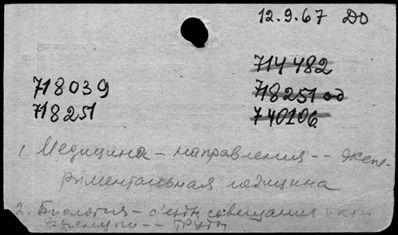 12.9.67 До
714482
718251 од
740106
718039
718251
1. Медицина – направления -- Экспе-
риментальная медицина
2. Биология – съезды, совещания и кон-
ференции -- Труды